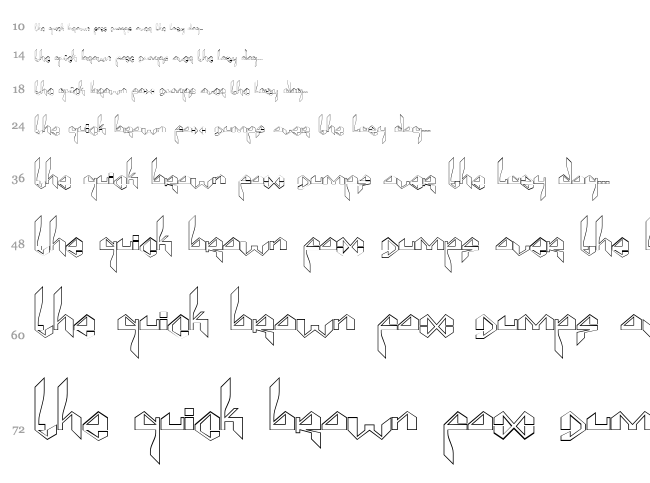 10 the quick brown fox jumps over the lazy dog
14 the quick brown fox jumps over the lazy dog
18 the quick brown fox jumps over the lazy dog
24 the quick brown fox jumps over the lazy dog
36 the quick brown fox jumps over the lazy dog
48 the quick brown fox jumps over the
60 the quick brown fox jumps
72 the quick brown fox jum